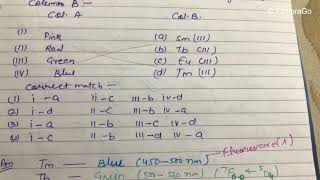 © FilmoraGo
Column B :-
Col. A Col. B.
(i) Pink (a) Sm (III)
(ii) Red (b) Tb (III)
(iii) Green (c) Eu (III)
(iv) Blue (d) Tm (III)
Correct match :-
(1) i - a ii - c iii - b iv - d
(2) i - c ii - b iii - d iv - a
(3) i - a ii - b iii - c iv - d
(4) i - c ii - b iii - d iv - a
Fluorescence (λ)
Tm — Blue (450 - 500 nm)
Tb — Green